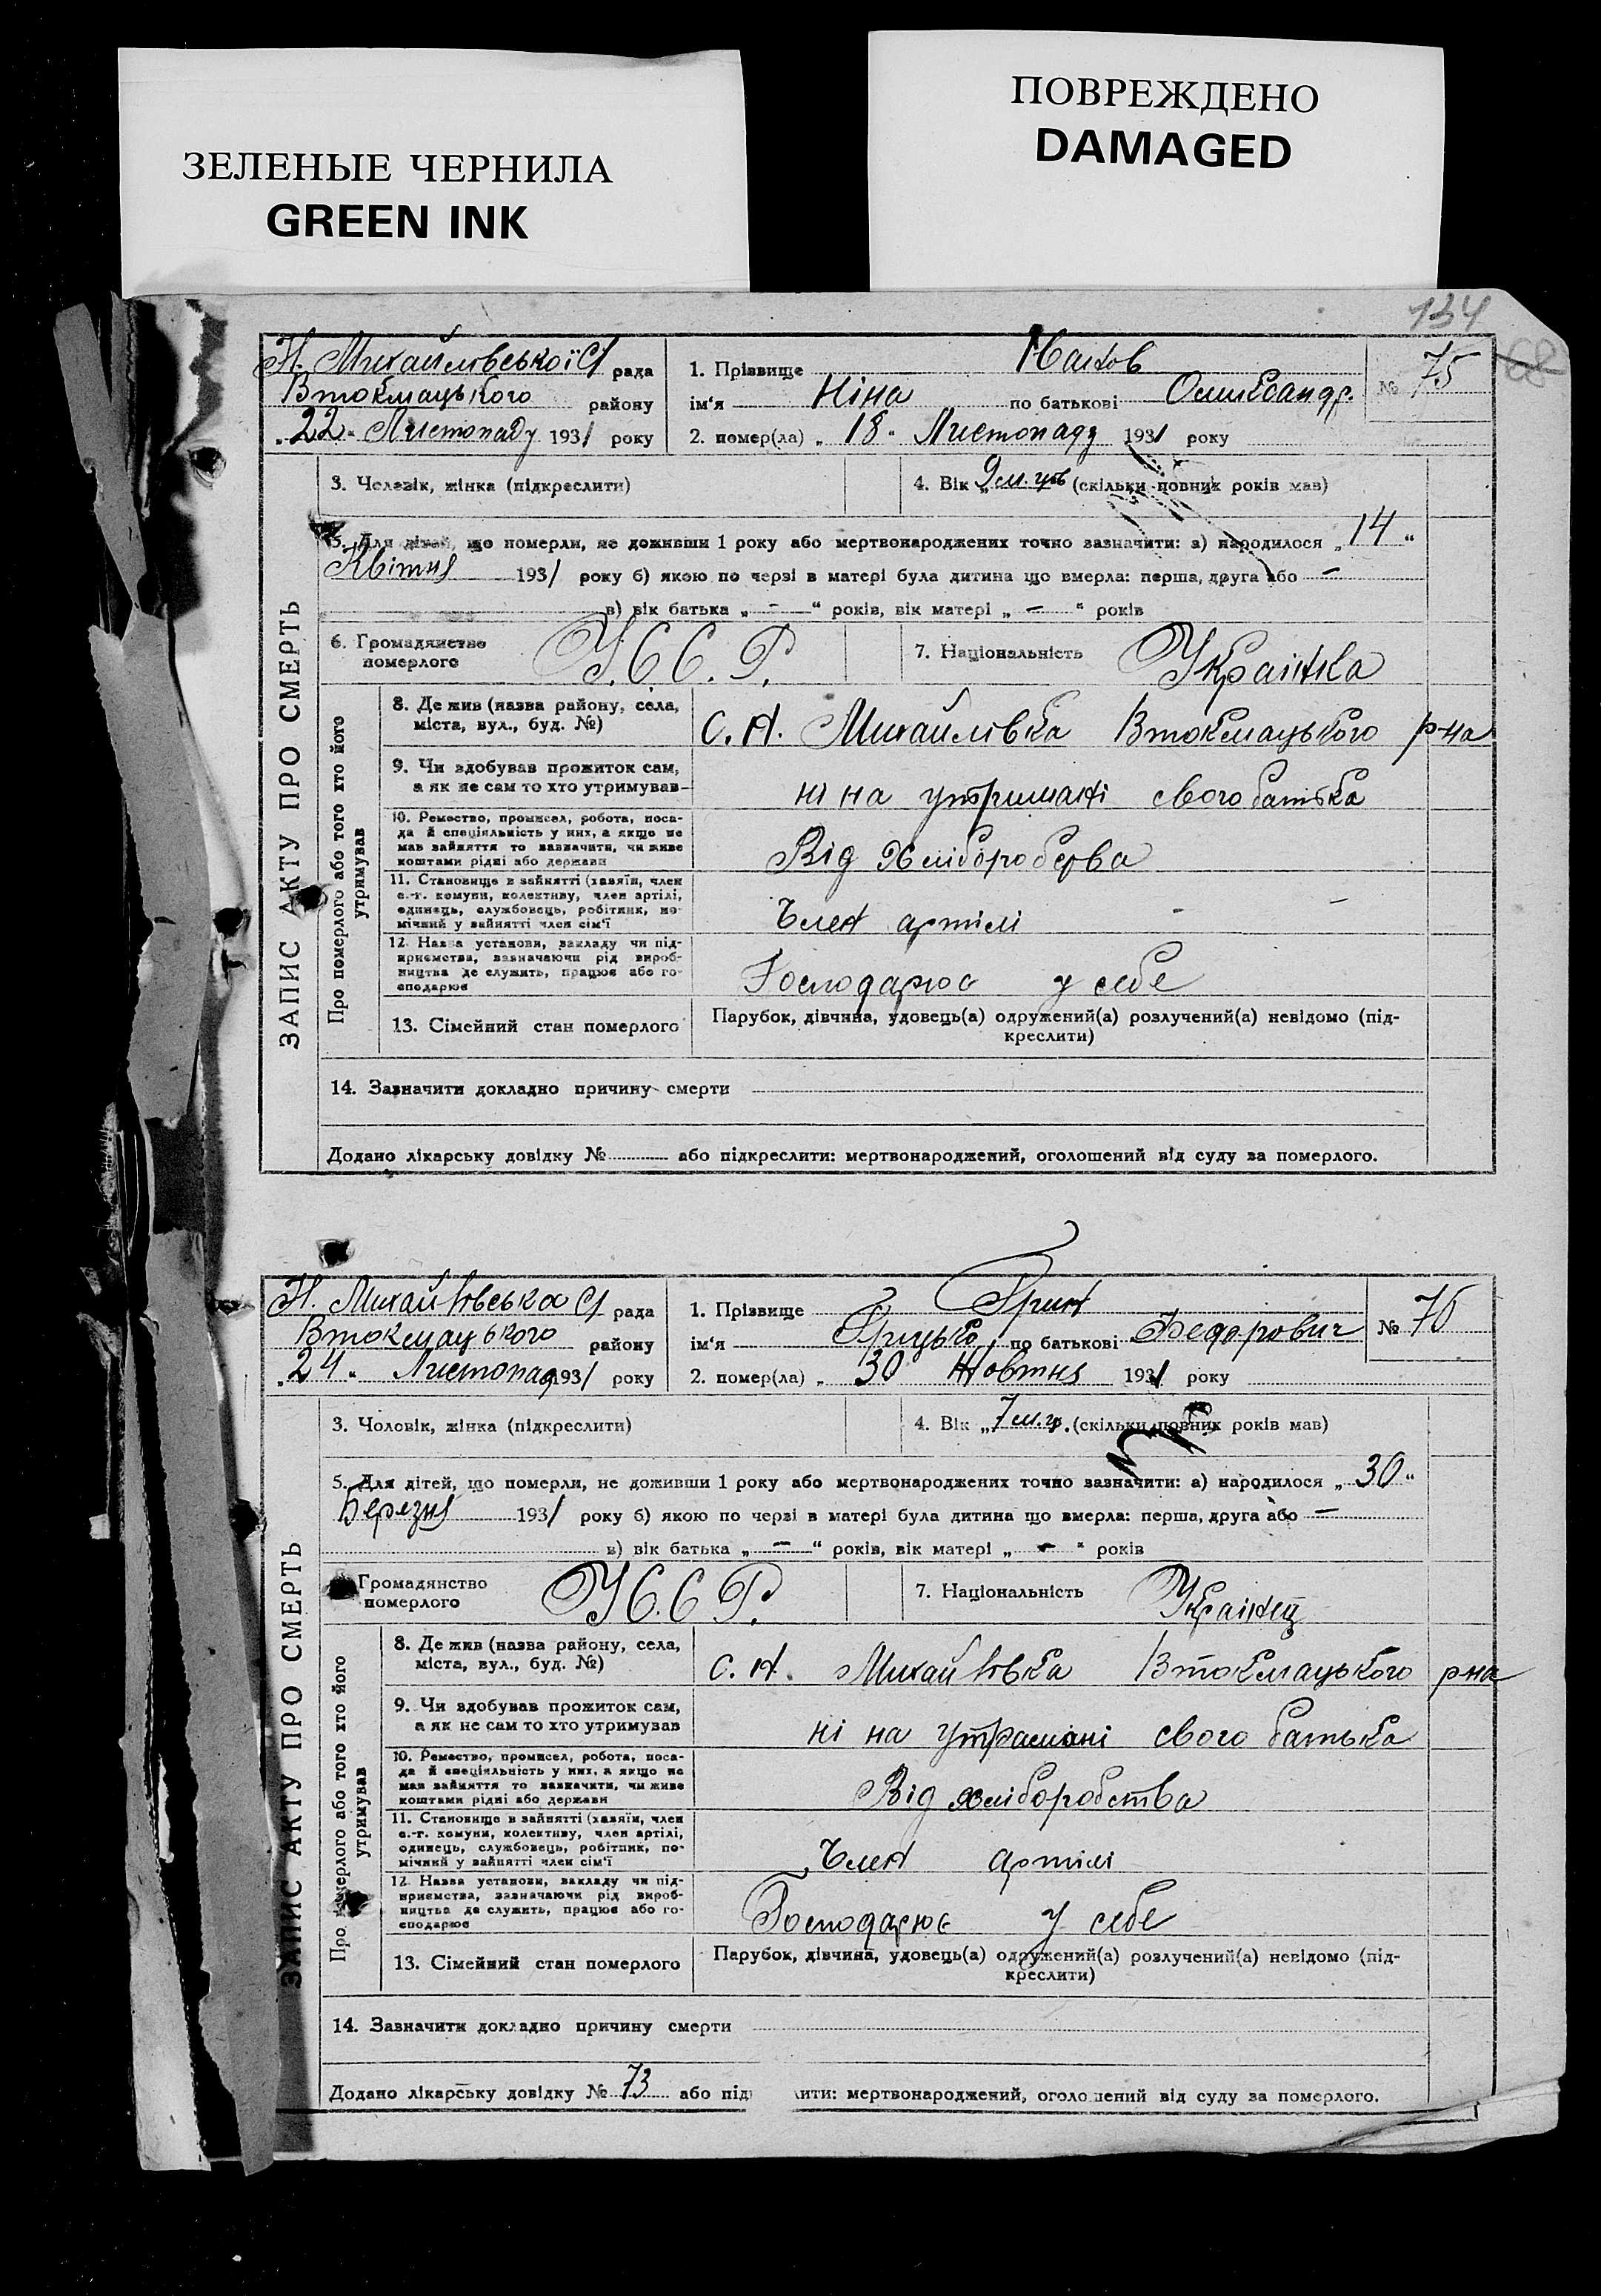 ЗЕЛЕНЫЕ ЧЕРНИЛА
GREEN INK
ПОВРЕЖДЕНО
DAMAGED
134
68
ЗАПИС АКТУ ПРО СМЕРТЬ
Н. Михайловської С/ рада
Втокмацького району
„22“ Листопаду 1931 року
1. Прізвище
ім'я Ніна по батькові
№ 75
2. помер(ла) „18“ Листопаду 1931 року
3. Чоловік, жінка (підкреслити)
4. Вік „9 м.ців (скільки повних років мав)
5. Для дітей, що померли, не доживши 1 року або мертвонароджених точно зазначити: а) народилося „14“
Квітня 1931 року б) якою по черзі в матері була дитина що вмерла: перша, друга або —
в) вік батька „—“ років, вік матері „—“ років
6. Громадянство
померлого
У.С.С.Р.
7. Національність Українка
Про померлого або того хто його
утримував
8. Де жив (назва району, села,
міста, вул., буд. №)
с. Н. Михайловка Втокмацького р-на
9. Чи здобував прожиток сам,
а як не сам то хто утримував
ні на утримані свого батька
10. Ремество, промисел, робота, поса-
да й спеціяльність у них, а якщо не
мав зайняття то зазначити, чи живе
коштами рідні або держави
Від
11. Становище в зайнятті (хазяїн, член
с.-г. комуни, колективу, член артілі,
одинець, службовець, робітник, по-
мічний у зайнятті член сім'ї
Член артілі
12. Назва установи, закладу чи під-
приємства, зазначаючи рід вироб-
ництва де служить, працює або го-
сподарює
Господарює у себе
13. Сімейний стан померлого
Парубок, дівчина, удовець(а) одружений(а) розлучений(а) невідомо (під-
креслити)
14. Зазначити докладно причину смерти
Додано лікарську довідку № або підкреслити: мертвонароджений, оголошений від суду за померлого.
ЗАПИС АКТУ ПРО СМЕРТЬ
Н. Михайловська С/ рада
Втокмацького району
„24“ Листопад 1931 року
1. Прізвище Грин
ім'я Грицько по батькові Федорович
№ 76
2. помер(ла) „30 Жовтня 1931 року
3. Чоловік, жінка (підкреслити)
4. Вік „7 м.ц. (скільки повних років мав)
5. Для дітей, що померли, не доживши 1 року або мертвонароджених точно зазначити: а) народилося „30“
Березня 1931 року б) якою по черзі в матері була дитина що вмерла: перша, друга або —
в) вік батька „—“ років, вік матері „—“ років
Громадянство
померлого
УССР.
7. Національність Українец
Про померлого або того хто його
утримував
8. Де жив (назва району, села,
міста, вул., буд. №)
с. Н. Михайловка Втокмацького р-на
9. Чи здобував прожиток сам,
а як не сам то хто утримував
ні на утримані свого батька
10. Ремество, промисел, робота, поса-
да й спеціяльність у них, а якщо не
мав зайняття то зазначити, чи живе
коштами рідні або держави
Від хліборобства
11. Становище в зайнятті (хазяїн, член
с.-г. комуни, колективу, член артілі,
одинець, службовець, робітник, по-
мічний у зайнятті член сім'ї
Член артілі
12. Назва установи, закладу чи під-
приємства, зазначаючи рід вироб-
ництва де служить, працює або го-
сподарює
Господарює у себе
13. Сімейний стан померлого
Парубок, дівчина, удовець(а) одружений(а) розлучений(а) невідомо (під-
креслити)
14. Зазначити докладно причину смерти
Додано лікарську довідку № 73 або підк лити: мертвонароджений, оголошений від суду за померлого.